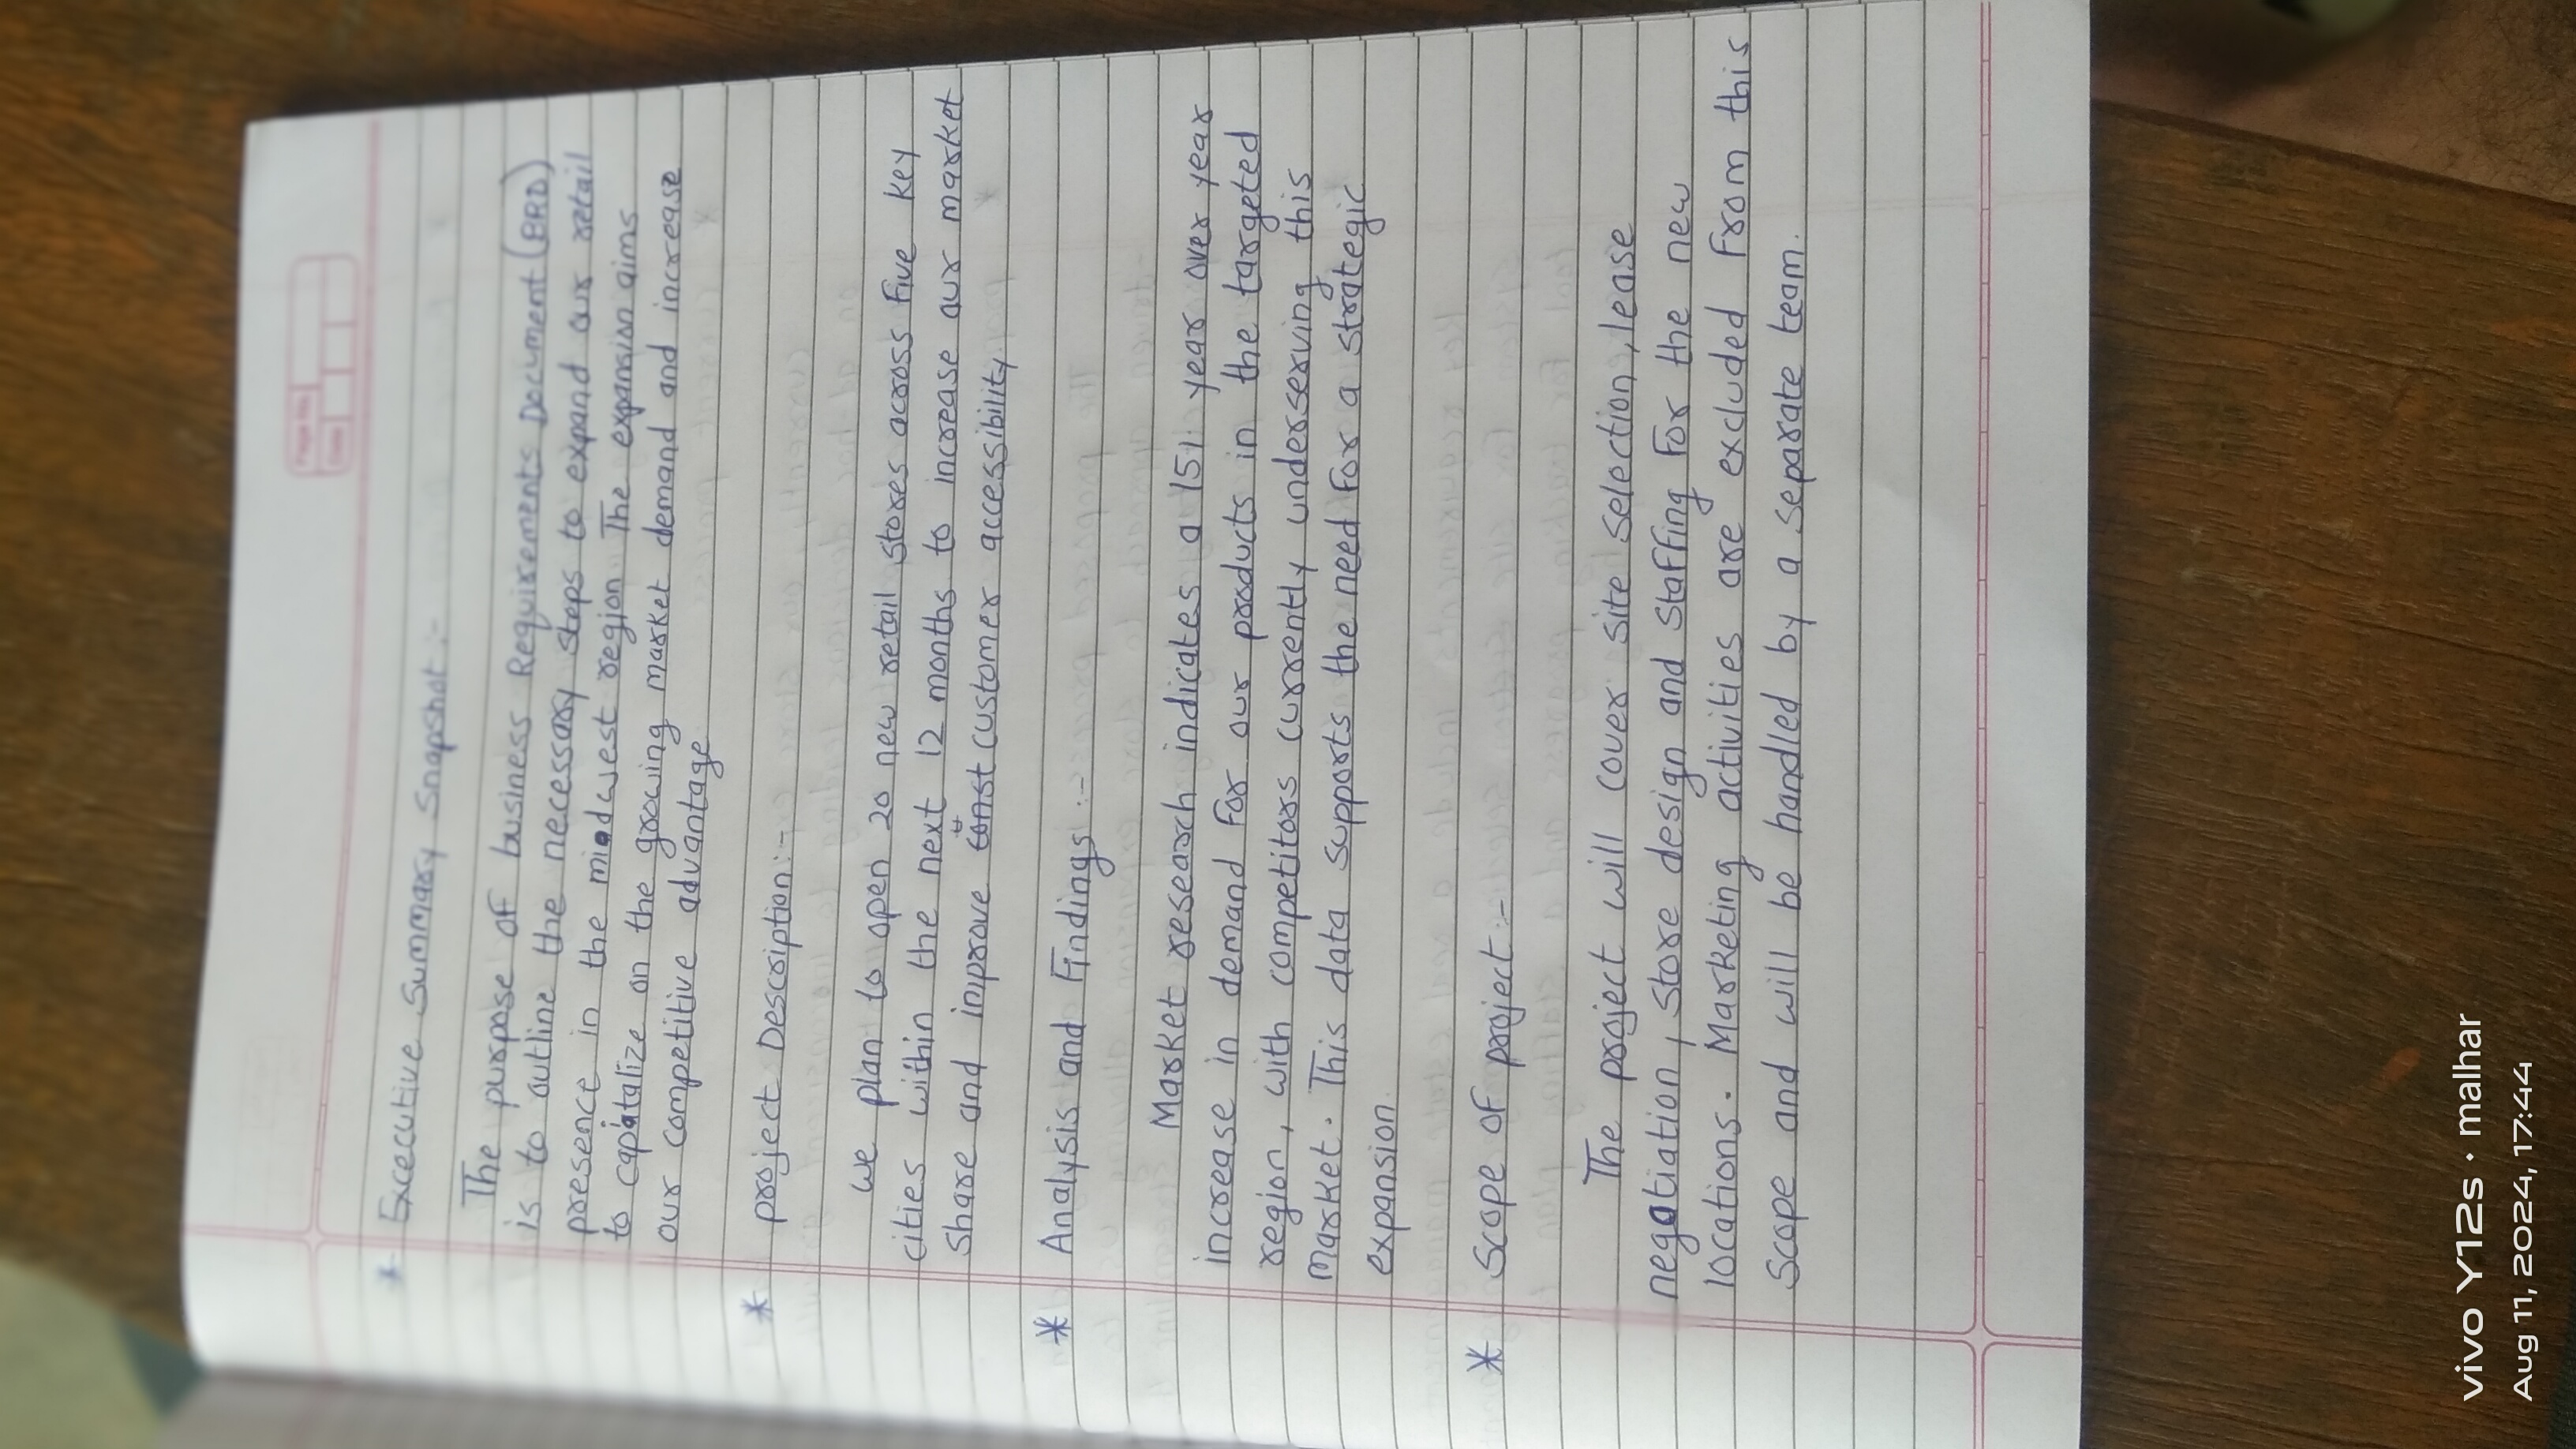 Page No.
Date
* Excecutive Summary Snapshot :-
The purpose of business Requirements Document (BRD)
is to outline the necessary steps to expand our retail
presence in the miodwest region. The expansion aims
to capitalize on the growing market demand and increase
our competitive advantage
* project Description :-
we plan to open 20 new retail stores across five key
cities within the next 12 months to increase our market
share and improve customer accessibility.
* Analysis and Findings :-
Market research indicates a 15% year over year
increase in demand for our products in the targeted
region, with competitors currently underserving this
market. This data supports the need for a strategic
expansion.
* Scope of project :-
The project will cover site selection, lease
negotiation, store design and staffing for the new
locations. Marketing activities are excluded from this
scope and will be handled by a separate team.
vivo Y12s · malhar
Aug 11, 2024, 17:44